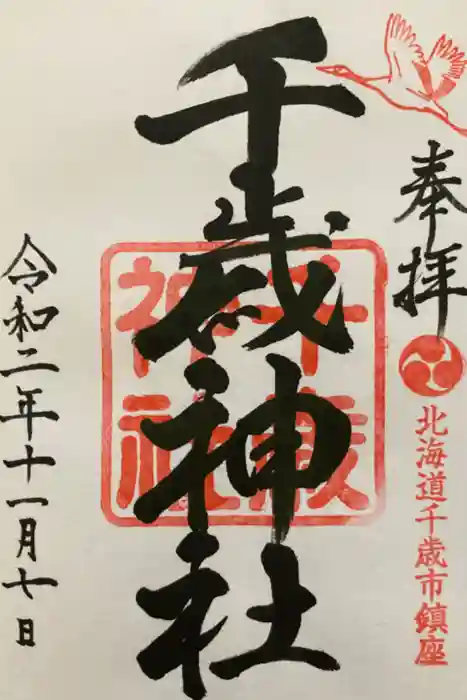 奉拝
北海道千歳市鎮座
千歳神社
千歳
神社
令和二年十一月七日